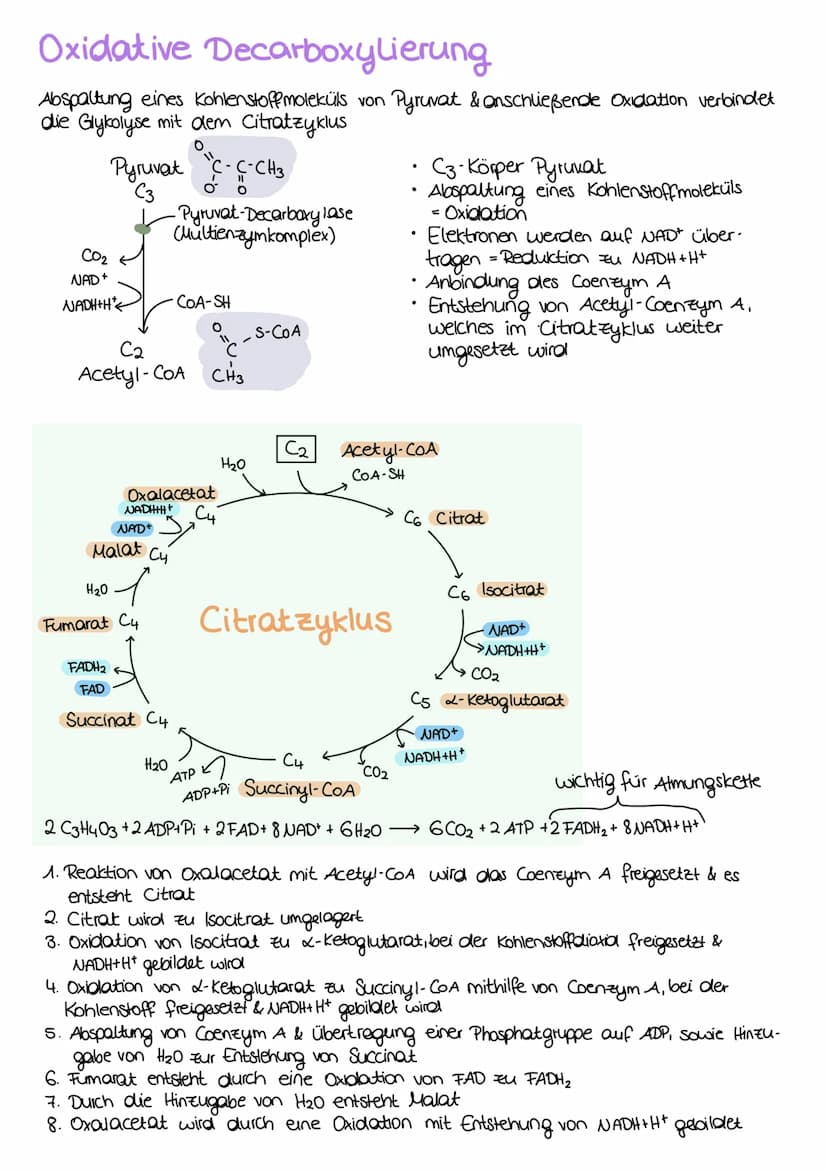 Oxidative Decarboxylierung
Abspaltung eines Kohlenstoffmoleküls von Pyruvat & anschließende Oxidation verbindet
die Glykolyse mit dem Citratzyklus
Pyruvat
C3
O
C-C-CH3
O- O
Pyruvat-Decarboxylase
(Multienzymkomplex)
CO2
NAD+
NADH+H+
CoA-SH
C2
Acetyl-CoA
O
S-CoA
C
CH3
• C3-Körper Pyruvat
• Abspaltung eines Kohlenstoffmoleküls
= Oxidation
• Elektronen werden auf NAD+ über-
tragen = Reduktion zu NADH+H+
• Anbindung des Coenzym A
• Entstehung von Acetyl-Coenzym A,
welches im Citratzyklus weiter
umgesetzt wird
C2 Acetyl-CoA
H2O
CoA-SH
Oxalacetat
NADH+H+
C4
NAD+
C6 Citrat
Malat C4
H2O
C6 Isocitrat
Citratzyklus
Fumarat C4
NAD+
NADH+H+
FADH2
CO2
FAD
C5 α-Ketoglutarat
Succinat C4
NAD+
NADH+H+
H2O
C4
CO2
ATP
ADP+Pi
Succinyl-CoA
wichtig für Atmungskette
2 C3H4O3 + 2 ADP+Pi + 2 FAD + 8 NAD+ + 6 H2O → 6 CO2 + 2 ATP + 2 FADH2 + 8 NADH+H+
1. Reaktion von Oxalacetat mit Acetyl-CoA wird das Coenzym A freigesetzt & es
entsteht Citrat
2. Citrat wird zu Isocitrat umgelagert
3. Oxidation von Isocitrat zu α-Ketoglutarat, bei der Kohlenstoffdioxid freigesetzt &
NADH+H+ gebildet wird
4. Oxidation von α-Ketoglutarat zu Succinyl-CoA mithilfe von Coenzym A, bei der
Kohlenstoff freigesetzt & NADH+H+ gebildet wird
5. Abspaltung von Coenzym A & Übertragung einer Phosphatgruppe auf ADP, sowie Hinzu-
gabe von H2O zur Entstehung von Succinat
6. Fumarat entsteht durch eine Oxidation von FAD zu FADH2
7. Durch die Hinzugabe von H2O entsteht Malat
8. Oxalacetat wird durch eine Oxidation mit Entstehung von NADH+H+ gebildet